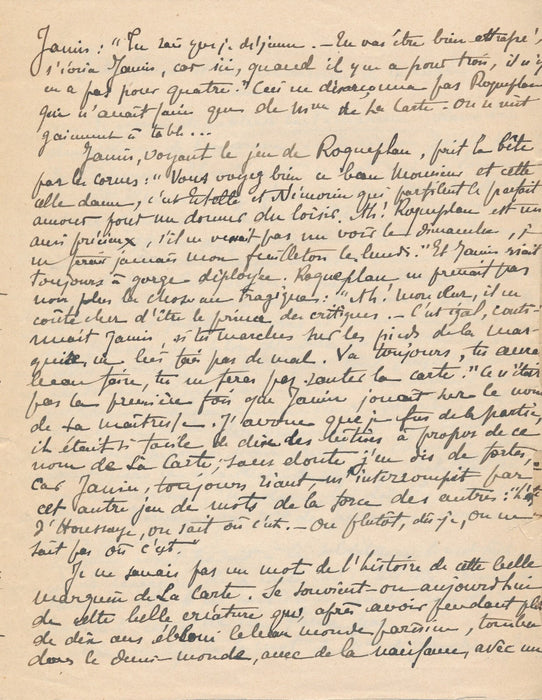 Janin : "Tu sais que je déjeune. – Tu vas être bien attrapé,
s'écria Janin, car ici, quand il y en a pour trois, il n'y
en a pas pour quatre." Ceci ne désarçonna pas Roqueplan
qui n'avait faim que de Mme de La Carte. On se mit
gaiement à table...
Janin, voyant le jeu de Roqueplan, prit la bête
par les cornes : "Vous voyez bien ce beau Monsieur et cette
belle dame, c'est Estelle et Némorin qui parfilent le parfait
amour pour se donner du loisir. Ah! Roqueplan est un
ami précieux, s'il ne venait pas me voir le dimanche, je
ne ferais jamais mon feuilleton le lundi." Et Janin riait
toujours à gorge déployée. Roqueplan ne prenait pas
non plus la chose au tragique : "Ah! mon cher, il en
coûte cher d'être le prince des critiques. – C'est égal, conti-
nuait Janin, si tu marches sur les pieds de la mar-
quise, ne lui fais pas de mal. Va toujours, tu auras
beau faire, tu ne feras pas sauter la carte." Ce n'était
pas la première fois que Janin jouait sur le nom
de sa maîtresse. J'avoue que je fus de la partie,
il était si facile de dire des bêtises à propos de ce
nom de La Carte; sans doute j'en dis de fortes,
car Janin, toujours riant, m'interrompit par
cet autre jeu de mots de la force des autres :
d'Houssaye, on sait où c'est. – Ou plutôt, dis-je, on ne
sait pas où c'est.
Je ne savais pas un mot de l'histoire de cette belle
marquise de La Carte. Se souvient-on aujourd'hui
de cette belle créature qui, après avoir pendant plus
de dix ans ébloui le beau monde parisien, tomba
dans le demi-monde, avec de la naissance, avec un